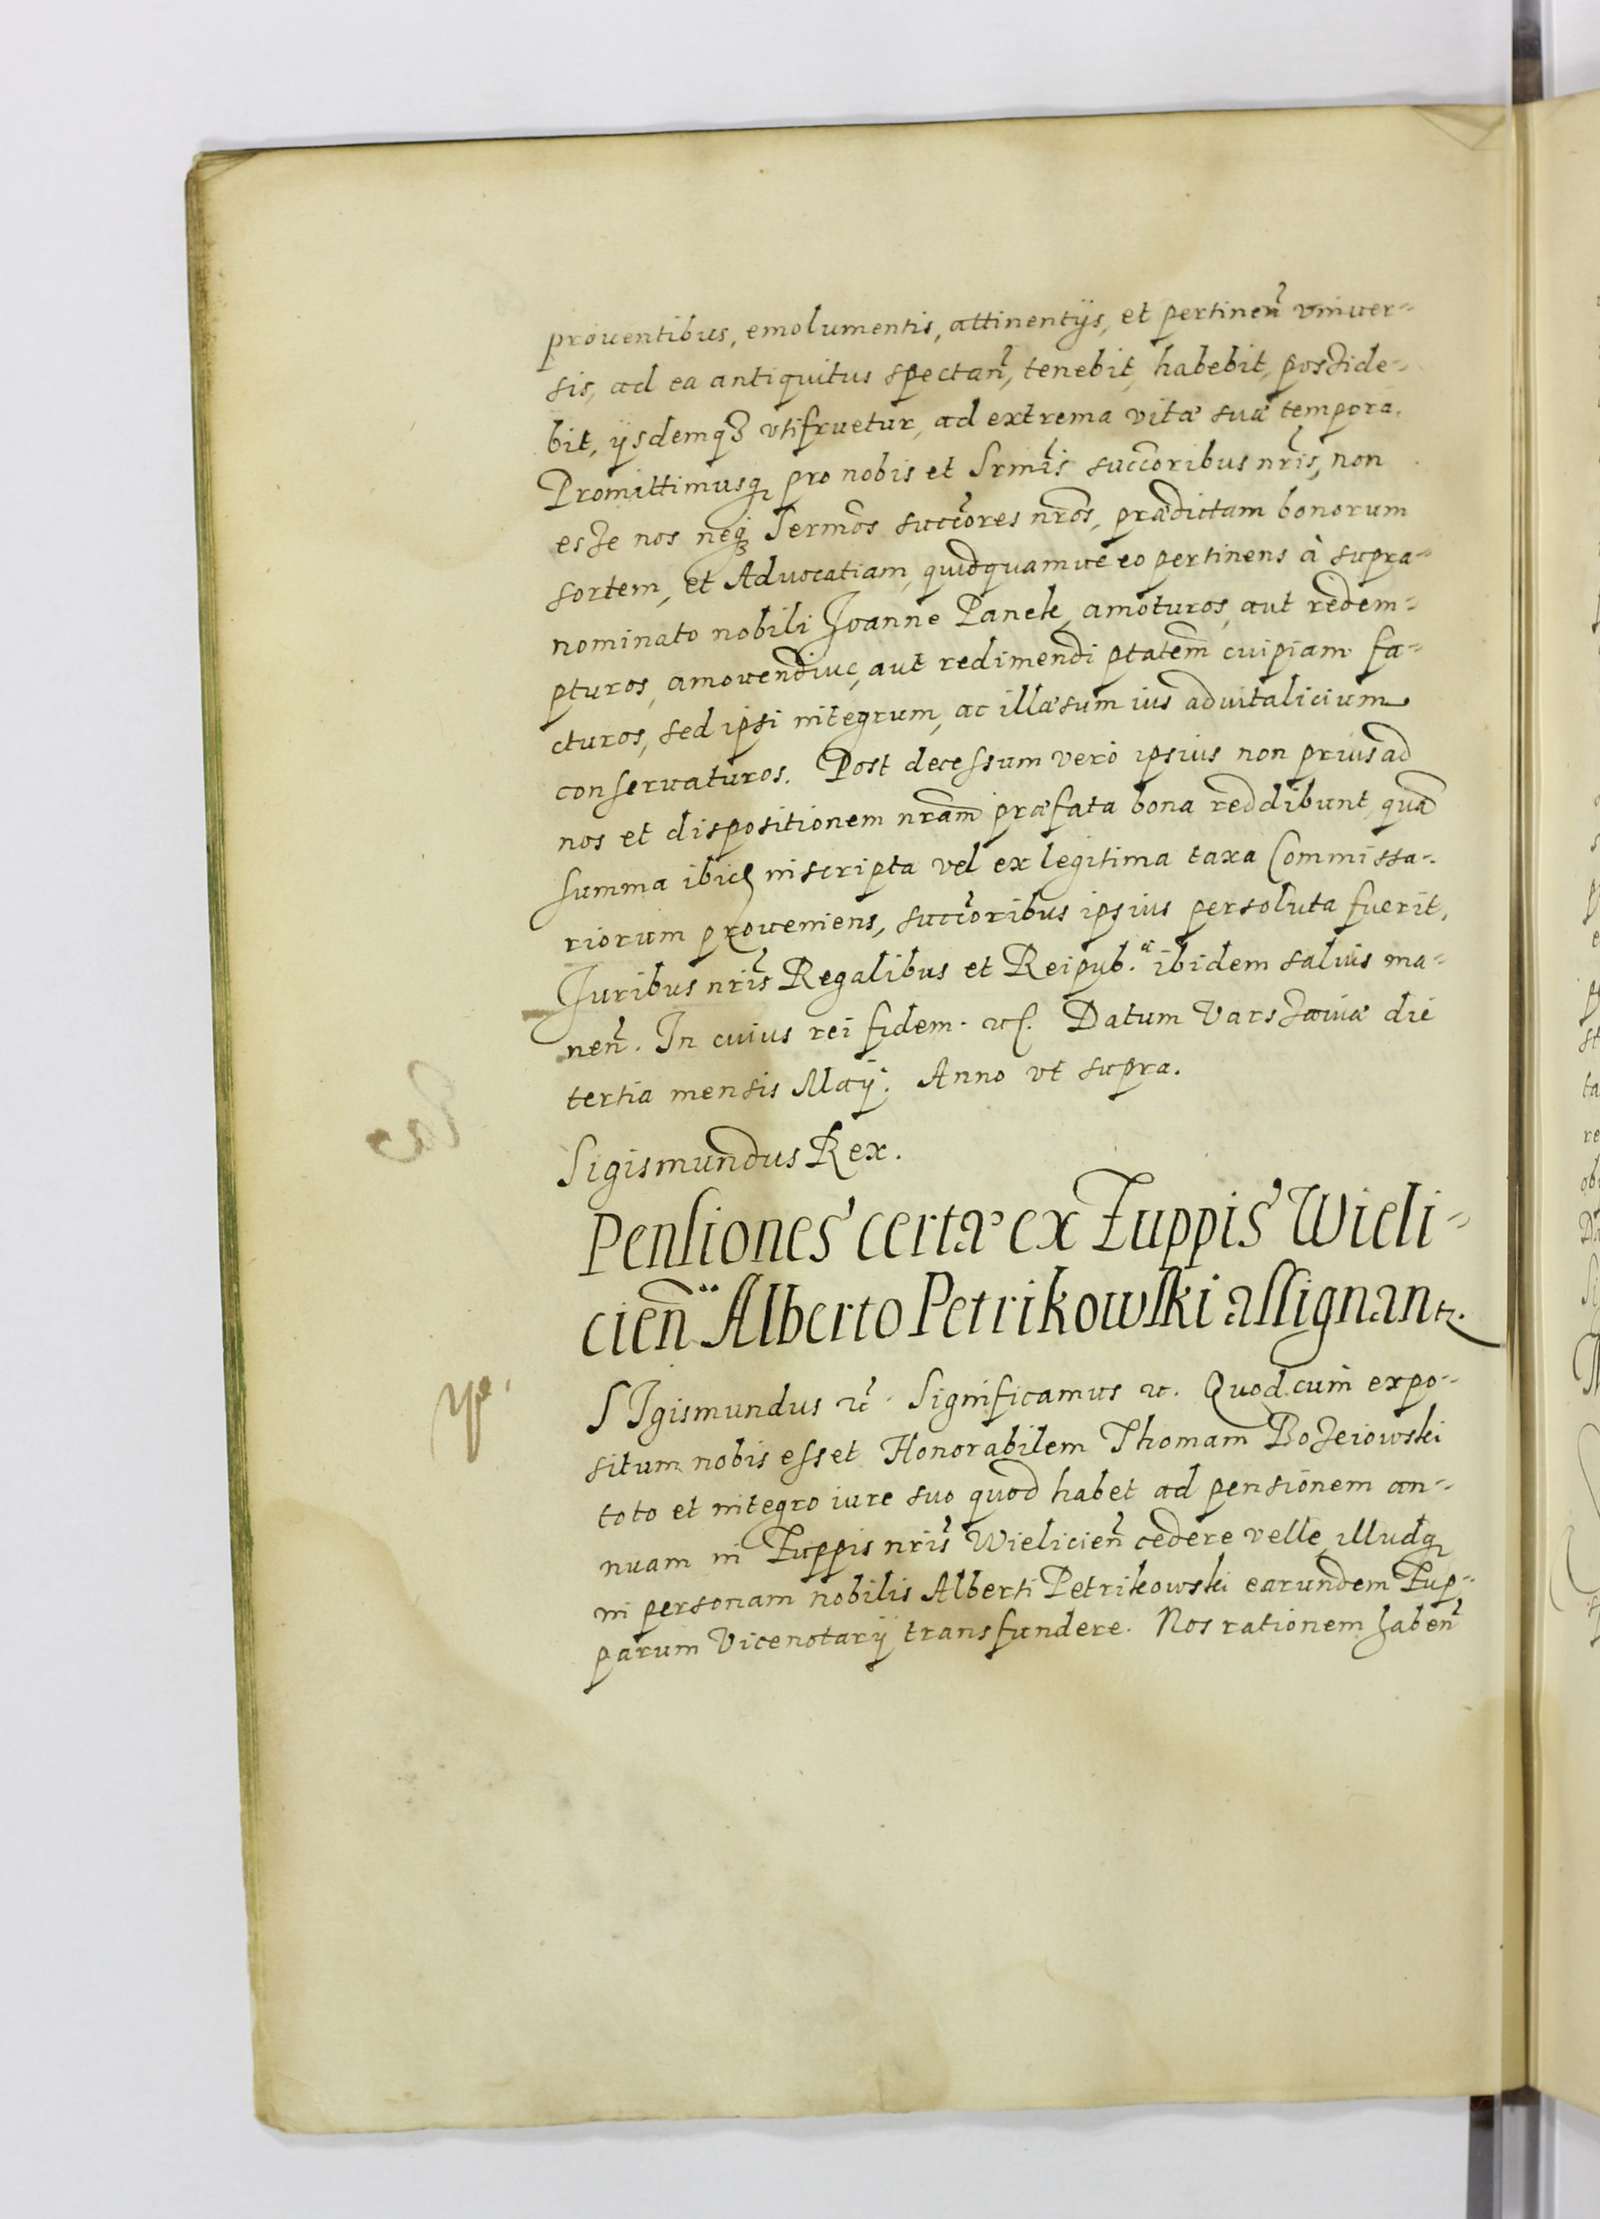 prouentibus, emolumentis, attinentijs, et pertinen̄ vniuer-
sis, ad ea antiquitus spectan̄, tenebit, habebit, posside-
bit, ijsdemq3 vtifruetur, ad extrema vitæ suæ tempora.
Promittimusq3 pro nobis et Srmīs succoribus nrīs, non
esse nos neq3 Sermōs succōres nrōs, prædictam bonorum
sortem, et Aduocatiam, quidquamue eo pertinens à supra-
nominato nobili Joanne Panek, amoturos, aut redem-
pturos, amouendiue, aut redimendi ptatem̄ cuipiam fa-
cturos, sed ipsi integrum, ac illæsum ius aduitalicium
conseruaturos. Post decessum verò ipsius non prius ad
nos et dispositionem nram̄ præfata bona reddibunt, quā
summa ibid inscripta vel ex legitima taxa Commissa-
riorum proueniens, succōribus ipsius persoluta fuerit,
Juribus nrīs Regalibus et Reipub. ibidem saluis ma-
nen̄. In cuius rei fidem. etc. Datum Varsæuiæ die
tertia mensis Maij. Anno vt supra.
Sigismundus Rex.
Pensiones certæ ex Zuppis Wieli-
cien̄ Alberto Petrikowski assignantr.
SJgismundus etc. Significamus etc. Quod cum expo-
situm nobis esset Honorabilem Thomam Bozeiowski
toto et integro iure suo quod habet ad pensionem an-
nuam in Zuppis nrīs Wielicien̄ cedere velle, illudq3
in personam nobilis Alberti Petrikowski earundem Zup-
parum Vicenotarij transfundere. Nos rationem haben̄